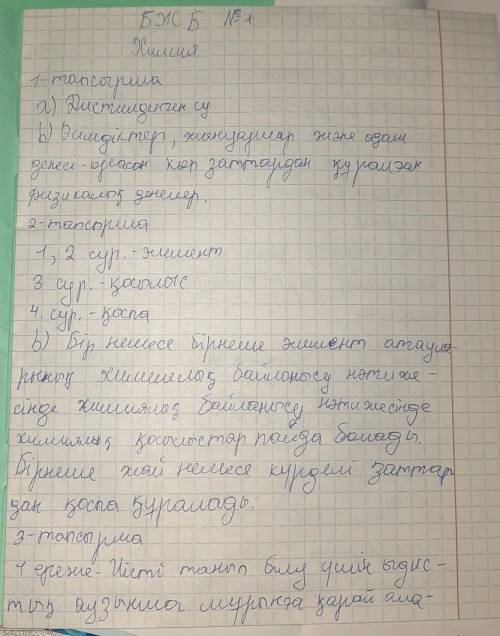 БЖБ №1
Химия
1-тапсырма
а) Дистилденген су
b) Өсімдіктер, жануарлар және адам
денесі - көп заттардан құралған
физикалық денелер.
2-тапсырма
1, 2 сур. - элемент
3 сур. - қосылыс
4. сур. - қоспа
b) Бір немесе бірнеше элемент атаула-
рының химиялық байланысу нәтиже-
сінде химиялық байланысу нәтижесінде
химиялық қосылыстар пайда болады.
Бірнеше жай немесе күрделі заттар
дан қоспа құралады.
3-тапсырма
1 ереже - Иісті танып білу үшін ыдыс-
тың аузынан мұрынға қарай ала-